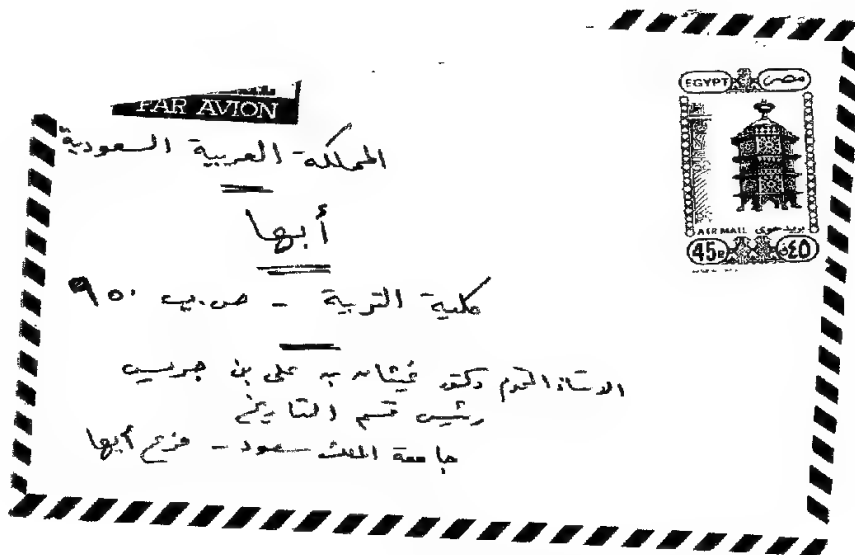 PAR AVION
EGYPT مصر
AIR MAIL بريد جوى
45P ٤٥ق
المملكة العربية السعودية
أبها
كلية التربية - ص.ب ٩٥٠
الاستاذ المحترم دكتور غيثان بن على بن جريس
رئيس قسم التاريخ
جامعة الملك سعود - فرع أبها